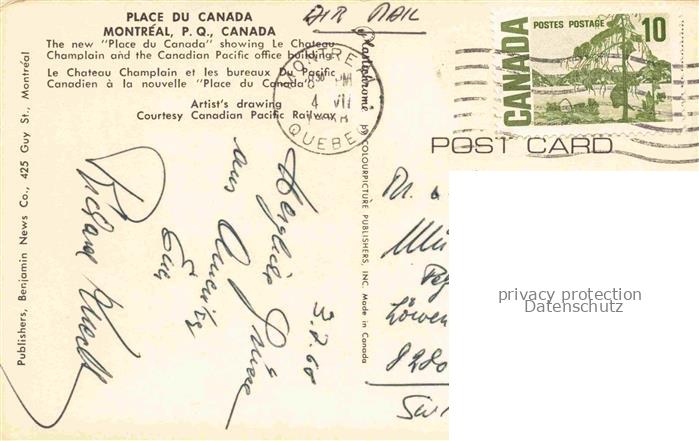 PLACE DU CANADA
MONTRÉAL, P. Q., CANADA
The new "Place du Canada" showing Le Chateau
Champlain and the Canadian Pacific office building.
Le Chateau Champlain et les bureaux Du Pacific
Canadien à la nouvelle "Place du Canada"
Artist's drawing
Courtesy Canadian Pacific Railway
AIR MAIL
POSTES POSTAGE
10
CANADA
MONTREAL
PM
4 VII
QUEBEC
POST CARD
Publishers, Benjamin News Co., 425 Guy St., Montréal
Plastichrome by COLOURPICTURE PUBLISHERS, INC. Made in Canada
Herzliche Grüsse
aus
Richard
Löwen
8280
privacy protection
Datenschutz